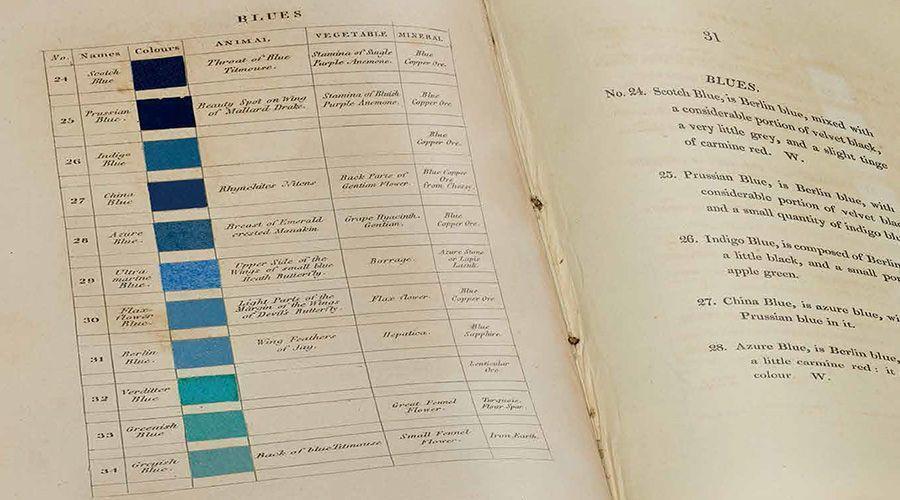 BLUES
No. Names Colours ANIMAL VEGETABLE MINERAL
24 Scotch Blue Throat of Blue Titmouse. Stamina of Single Purple Anemone. Blue Copper Ore.
25 Prussian Blue. Beauty Spot on Wing of Mallard Drake. Stamina of Bluish Purple Anemone. Blue Copper Ore.
26 Indigo Blue Blue Copper Ore.
27 China Blue Rhynchites Nitens Back Parts of Gentian Flower. Blue Copper Ore from Chessy.
28 Azure Blue. Breast of Emerald crested Manakin. Grape Hyacinth. Gentian. Blue Copper Ore.
29 Ultra marine Blue. Upper Side of the Wings of small blue Heath Butterfly. Borrage. Azure Stone or Lapis Lazuli.
30 Flax-flower Blue. Light Parts of the Margin of the Wings of Devil's Butterfly. Flax flower. Blue Copper Ore.
31 Berlin Blue. Wing Feathers of Jay. Hepatica. Blue Sapphire.
32 Verditter Blue. Lenticular Ore.
33 Greenish Blue. Great Fennel Flower. Turquois. Flour Spar.
34 Greyish Blue. Back of blue Titmouse. Small Fennel Flower. Iron Earth.
31
BLUES.
No. 24. Scotch Blue, is Berlin blue, mixed with
a considerable portion of velvet black,
a very little grey, and a slight tinge
of carmine red. W.
25. Prussian Blue, is Berlin blue, with
considerable portion of velvet blac
and a small quantity of indigo blu
26. Indigo Blue, is composed of Berlin
a little black, and a small por
apple green.
27. China Blue, is azure blue, wi
Prussian blue in it.
28. Azure Blue, is Berlin blue,
a little carmine red: it
colour W.